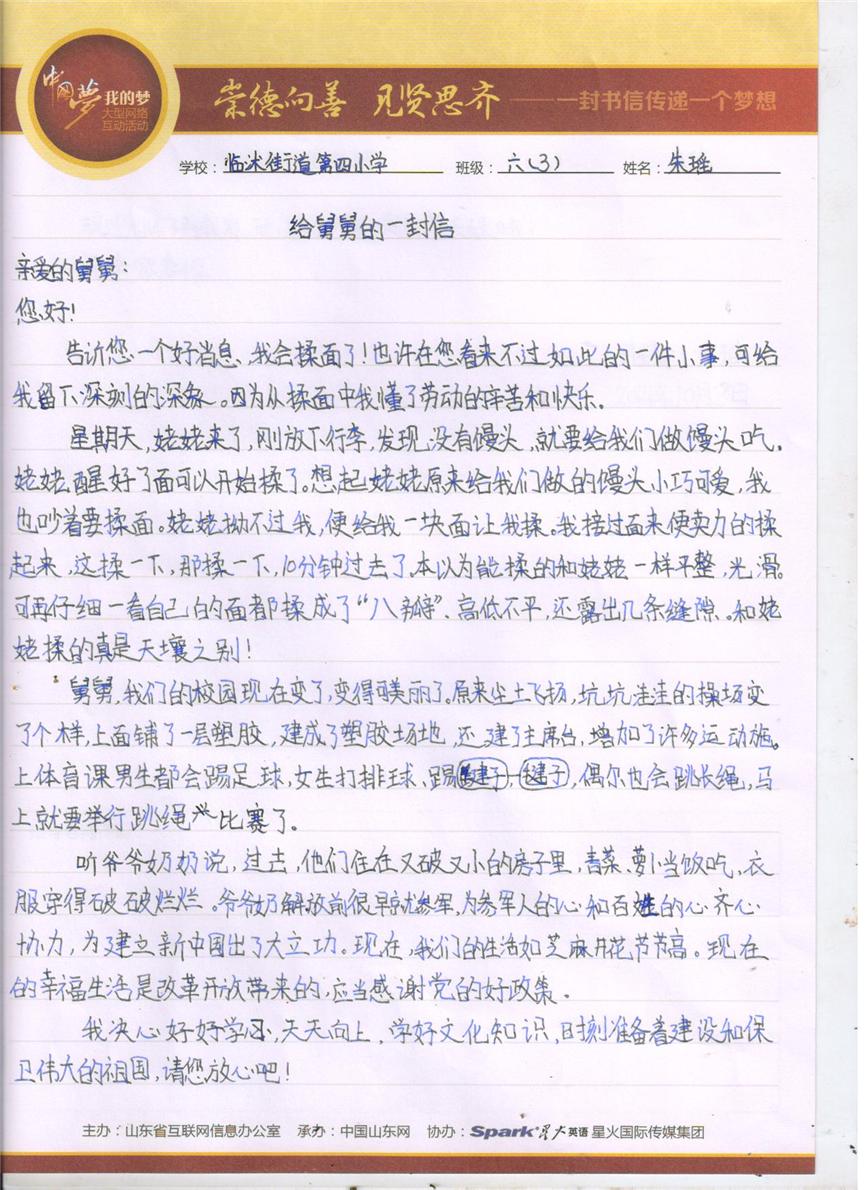 中国梦 我的梦
大型网络
互动活动
崇德向善 见贤思齐 ——一封书信传递一个梦想
学校：临沭街道第四小学 班级：六(3) 姓名：朱瑶
给舅舅的一封信
亲爱的舅舅：
您好！
告诉您一个好消息、我会揉面了！也许在您看来不过如此的一件小事，可给
我留下深刻的深象。因为从揉面中我懂了劳动的辛苦和快乐.
星期天，姥姥来了，刚放下行李，发现没有馒头，就要给我们做馒头吃。
姥姥醒好了面可以开始揉了。想起姥姥原来给我们做的馒头小巧可爱，我
也吵着要揉面。姥姥拗不过我，便给我一块面让我揉。我接过面来便卖力的揉
起来，这揉一下，那揉一下，10分钟过去了.本以为能揉的和姥姥一样平整，光滑。
可再仔细一看自己的面都揉成了“八瓣”、高低不平，还露出几条缝隙。和姥
姥揉的真是天壤之别！
舅舅，我们的校园现在变了，变得可美丽了。原来尘土飞扬，坑坑洼洼的操场变
了个样，上面铺了一层塑胶，建成了塑胶场地，还建了主席台，增加了许多运动施。
上体育课男生都会踢足球，女生打排球、踢毽子，偶尔也会跳长绳，马
上就要举行跳绳比赛了。
听爷爷奶奶说，过去，他们住在又破又小的房子里，青菜、萝卜当饭吃，衣
服穿得破破烂烂。爷爷奶解放前很早就参军，为参军人的心和百姓的心齐心
协力，为建立新中国出了大立功。现在，我们的生活如芝麻开花节节高。现在
的幸福生活是改革开放带来的，应当感谢党的好政策.
我决心好好学习，天天向上，学好文化知识，时刻准备着建设和保
卫伟大的祖国，请您放心吧！
主办：山东省互联网信息办公室 承办：中国山东网 协办：Spark 星火英语 星火国际传媒集团